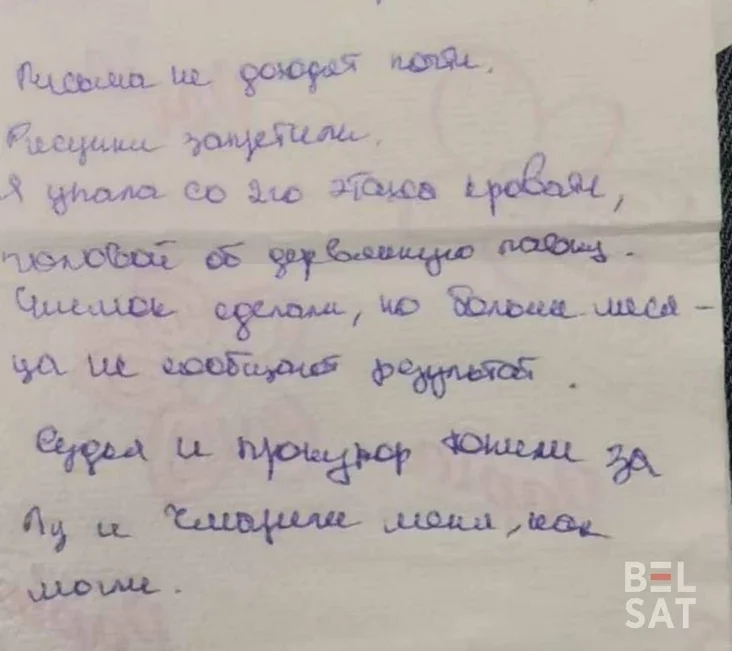 Письма не доходят почти.
Рисунки запретили.
Я упала со 2го этажа кровати,
головой об деревянную лавку.
Снимок сделали, но больше меся-
ца не сообщают результат.
Судья и прокурор топили за
Лу и чморили меня, как
могли.
BEL
SAT